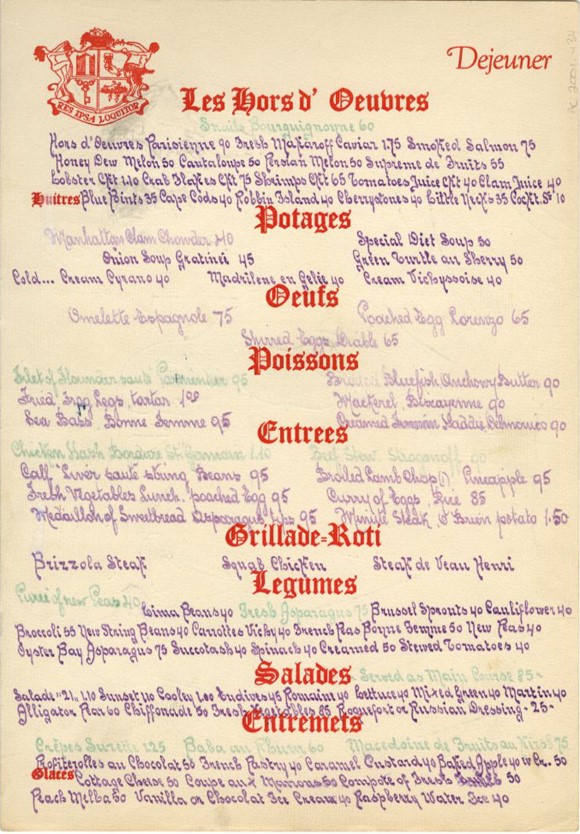 RES IPSA LOQUITOR
Dejeuner
Les Hors d' Oeuvres
Snails Bourguignonne 60
Hors d'Oeuvres Parisienne 90 Fresh Makaroff Caviar 1.75 Smoked Salmon 75
Honey Dew Melon 50 Cantaloupe 50 Persian Melon 50 Supreme de Fruits 55
Lobster Ckt 1.10 Crab Flakes Ckt 75 Shrimps Ckt 65 Tomatoes Juice Ckt 40 Clam Juice 40
Huitres Blue Points 35 Cape Cods 40 Robbin Island 40 Cherrystones 40 Little Necks 35 Cockt. S' 10
Potages
Manhattan Clam Chowder 40
Special Diet Soup 50
Onion Soup Gratinei 45
Green Turtle au Sherry 50
Cold... Cream Cyrano 40 Madrilene en Gelée 40 Cream Vichyssoise 40
Oeufs
Omelette Espagnole 75
Poached Egg Lorenzo 65
Shirred Eggs Diable 65
Poissons
Filet of Flounder sauté Parmentier 95
Broiled Bluefish Anchovy Butter 90
Fried Frog Legs, tartar
Mackerel Biscayenne 90
Sea Bass Bonne Femme 95
Creamed Finnan Haddy, Delmonico 90
Entrees
Chicken Hash Bordure St. Germain 1.10
Beef Stew 90
Calf Liver sauté String Beans 95
Broiled Lamb Chop (1) Pineapple 95
Fresh Vegetables Lunch, poached Egg 95
Curry of Eggs, Rice 85
Medaillon of Sweetbread Asparagus tips 95
Minute Steak O'Brien potato 1.50
Grillade-Roti
Brizzola Steak Squab Chicken Steak de Veau Henri
Legumes
Puree of new Peas 40 Lima Beans 40 Fresh Asparagus 75 Brussel Sprouts 40 Cauliflower 40
Broccoli 55 New String Beans 40 Carrottes Vichy 40 French Peas Bonne Femme 50 New Peas 40
Oyster Bay Asparagus 75 Succotash 40 Spinach 40 Creamed 50 Stewed Tomatoes 40
Salades - Served as Main Course 85 -
Salade "21" 1.10 Sunset 1.10 Cooley 1.00 Endives 45 Romain 40 Lettuce 40 Mixed Green 40 Martin 40
Alligator Pear 60 Chiffonade 50 Fresh Vegetables 85 Roquefort or Russian Dressing - 25 -
Entremets
Crêpes Suzette 1.25 Baba au Rhum 60 Macedoine de Fruits au Kirsh 75
Profiterolles au Chocolat 55 French Pastry 40 Caramel Custard 40 Baked Apple 40 w Cr. 50
Glaces Cottage Cheese 50 Coupe aux Marrons 50 Compote of Fresh 50
Peach Melba 50 Vanilla or Chocolat Ice Cream 40 Raspberry Water Ice 40